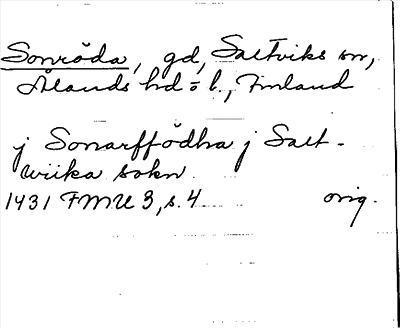 Sonröda, gd, Saltviks sn,
Ålands hd o l., Finland
j Sonarffödha j Salt-
wiika sokn
1431 FMU 3, s. 4 orig.